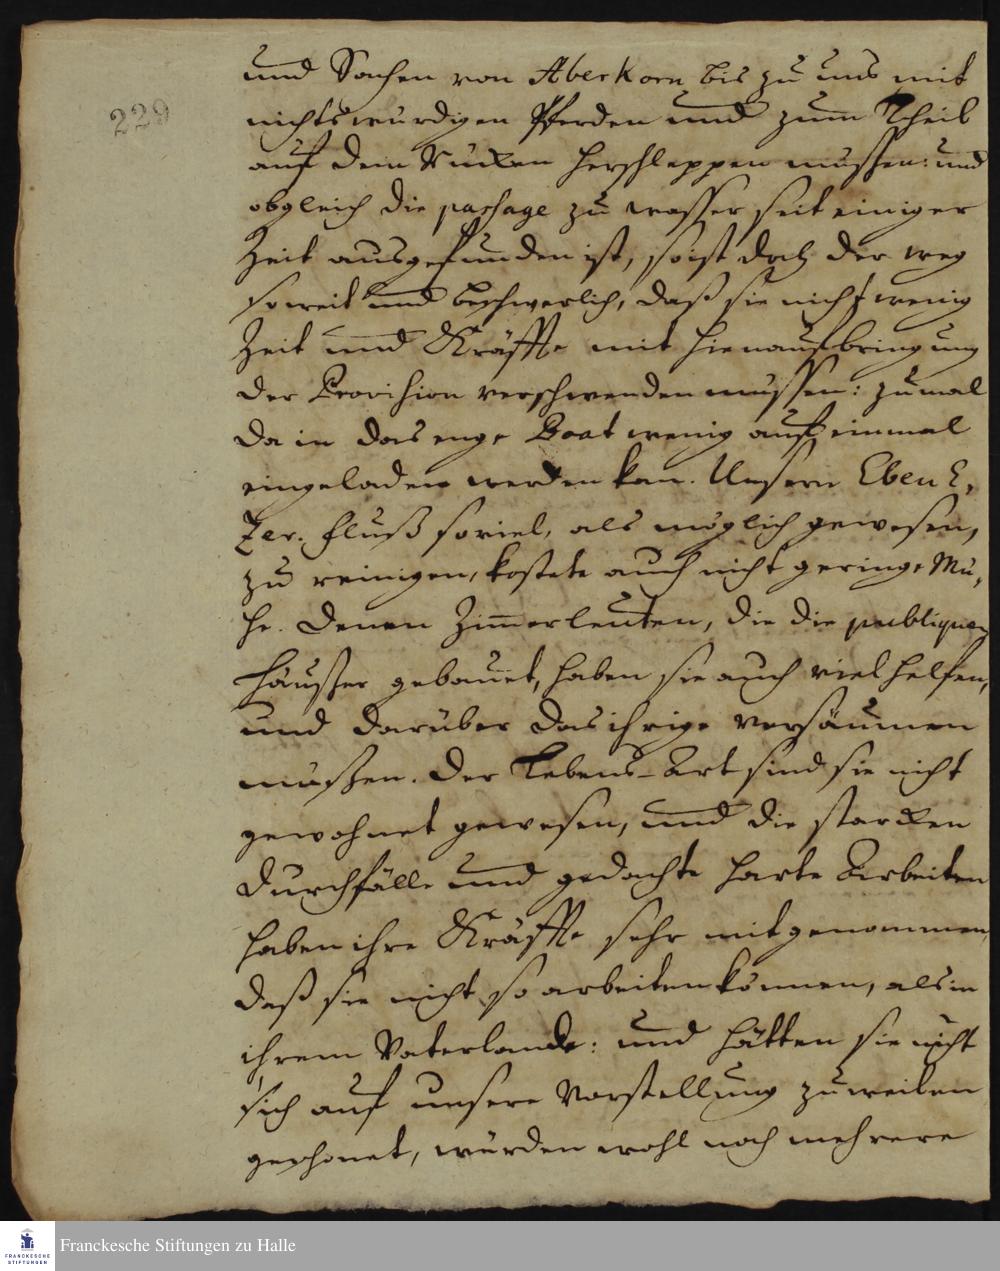 229
und Sachen von Aberkorn bis zu uns mit
nichtswürdigen Pferden und zum Theil
auf dem Rücken herschleppen mußen: und
obgleich die passage zu wasser seit einiger
Zeit ausgefunden ist, so ist doch der weg
so weit und beschwerlich, daß sie nicht wenig
Zeit und Kräffte mit hienaufbringung
der Provision verschwenden müssen: zumal
da in das enge Boat wenig auf einmal
eingeladen werden kan. Unsern Eben E,
zer. Fluß so viel, als möglich gewesen,
zu reinigen, kostete auch nicht geringe Mü,
he. Denen Zimmerleuten, die die publiquen
Häußer gebauet, haben sie auch viel helfen,
und darüber das ihrige versäumen
müßen. Der Lebens-Art sind sie nicht
gewohnet gewesen, und die starcken
Durchfälle und gedachte harte Arbeiten
haben ihre Kräffte sehr mitgenommen,
daß sie nicht so arbeiten können, als in
ihrem Vaterlande: und hätten sie nicht
sich auf unsere Vorstellung zuweilen
geschonet, würden wohl noch mehrere
FRANCKESCHE STIFTUNGEN
Franckesche Stiftungen zu Halle